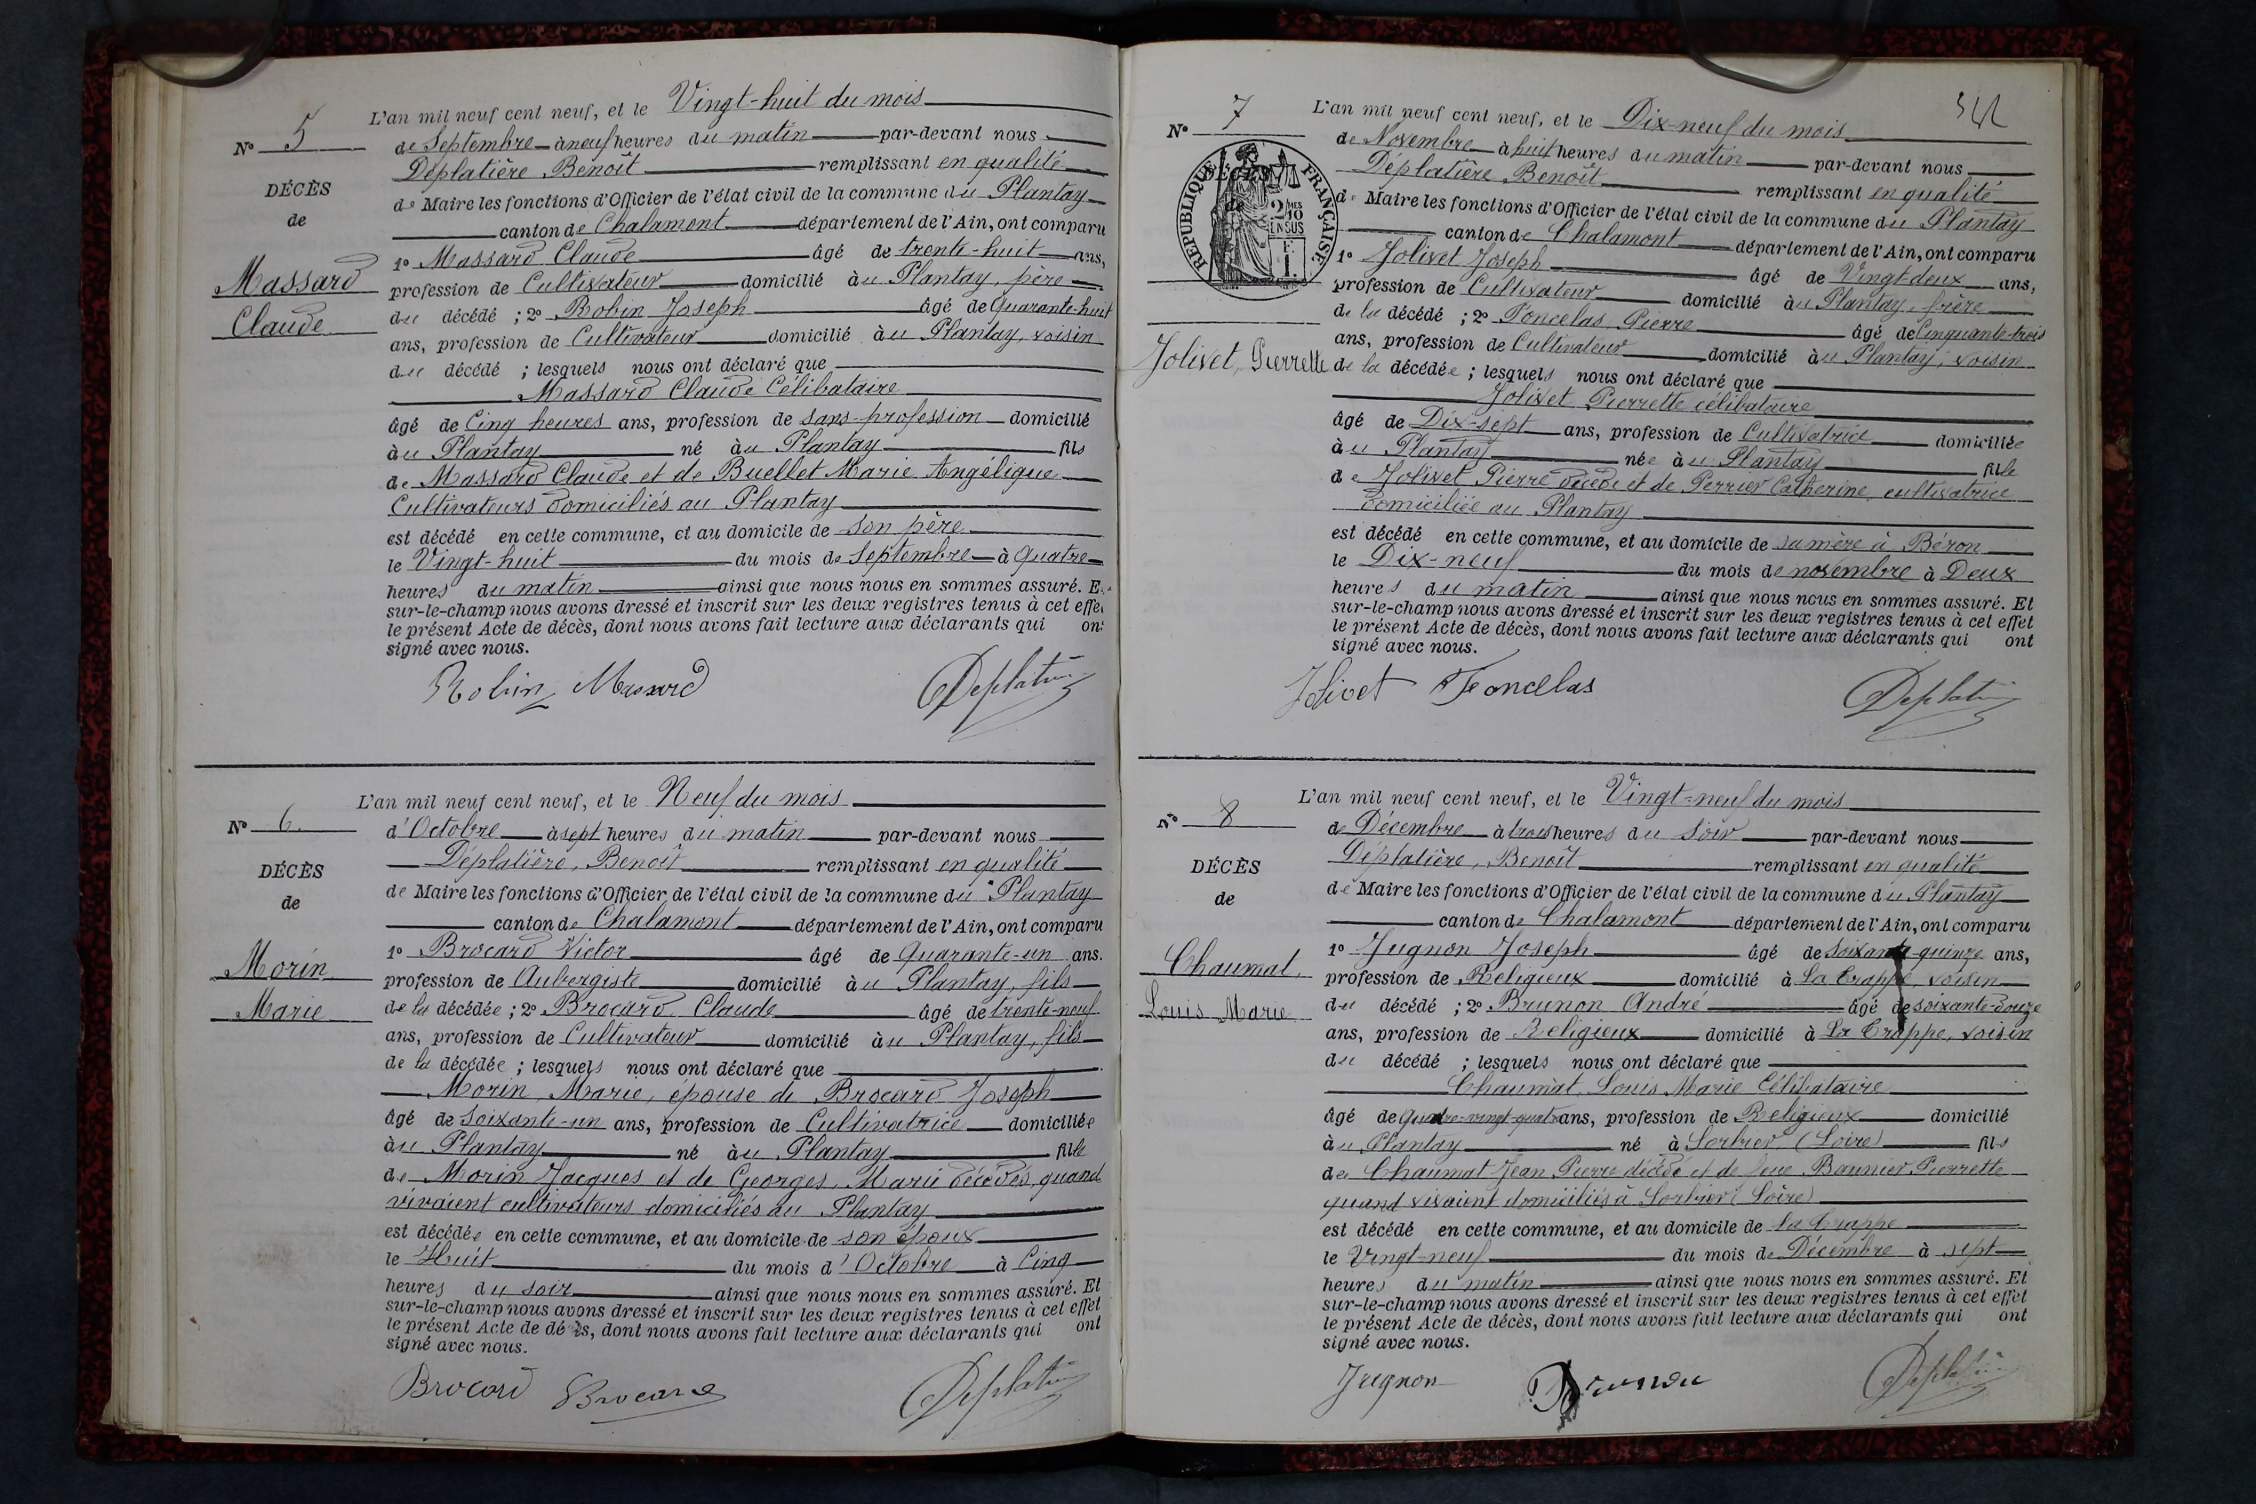 N° 5
DÉCÈS
de
Massard
Claude
L'an mil neuf cent neuf, et le Vingt-huit du mois
de Septembre à neuf heures du matin par-devant nous
Déplatière Benoît remplissant en qualité
de Maire les fonctions d'Officier de l'état civil de la commune du Plantay
canton de Chalamont département de l'Ain, ont comparu
1° Massard Claude âgé de trente-huit ans,
profession de Cultivateur domicilié au Plantay, père
du décédé ; 2° Robin Joseph âgé de Quarante-huit
ans, profession de Cultivateur domicilié au Plantay, voisin
du décédé ; lesquels nous ont déclaré que
Massard Claude Célibataire
âgé de Cinq heures ans, profession de sans profession domicilié
au Plantay né au Plantay fils
de Massard Claude et de Buellet Marie Angélique
Cultivateurs domiciliés au Plantay
est décédé en cette commune, et au domicile de son père
le Vingt-huit du mois de Septembre à Quatre
heures du matin ainsi que nous nous en sommes assuré. E
sur-le-champ nous avons dressé et inscrit sur les deux registres tenus à cet effe
le présent Acte de décès, dont nous avons fait lecture aux déclarants qui on
signé avec nous.
Robin Massard Deplatière
N° 6.
DÉCÈS
de
Morin
Marie
L'an mil neuf cent neuf, et le Neuf du mois
d'Octobre à sept heures du matin par-devant nous
Déplatière, Benoît remplissant en qualité
de Maire les fonctions d'Officier de l'état civil de la commune du Plantay
canton de Chalamont département de l'Ain, ont comparu
1° Brocard Victor âgé de Quarante-un ans.
profession de Aubergiste domicilié au Plantay, fils
de la décédée ; 2° Brocard Claude âgé de trente-neuf
ans, profession de Cultivateur domicilié au Plantay, fils
de la décédée ; lesquels nous ont déclaré que
Morin, Marie, épouse de Brocard Joseph
âgé de Soixante-un ans, profession de Cultivatrice domiciliée
au Plantay né au Plantay fille
de Morin Jacques et de Georges, Marie décédés, quand
vivaient cultivateurs domiciliés au Plantay
est décédée en cette commune, et au domicile de son époux
le Huit du mois d'Octobre à Cinq
heures du soir ainsi que nous nous en sommes assuré. Et
sur-le-champ nous avons dressé et inscrit sur les deux registres tenus à cet effet
le présent Acte de décès, dont nous avons fait lecture aux déclarants qui ont
signé avec nous.
Brocard Brocard Deplatière
N° 7
RÉPUBLIQUE FRANÇAISE
DÉCÈS
de
2/10 MES
EN SUS
F.
1.
Jolivet, Pierrette
L'an mil neuf cent neuf, et le Dix-neuf du mois
de Novembre à huit heures du matin par-devant nous
Déplatière Benoît remplissant en qualité
de Maire les fonctions d'Officier de l'état civil de la commune du Plantay
canton de Chalamont département de l'Ain, ont comparu
1° Jolivet Joseph âgé de Vingt-deux ans,
profession de Cultivateur domicilié au Plantay, frère
de la décédé ; 2° Foncelas, Pierre âgé de Cinquante-trois
ans, profession de Cultivateur domicilié au Plantay, voisin
de la décédée ; lesquels nous ont déclaré que
Jolivet Pierrette célibataire
âgé de Dix-sept ans, profession de Cultivatrice domiciliée
au Plantay née au Plantay fille
de Jolivet Pierre décédé et de Perrier Catherine, cultivatrice
domiciliée au Plantay
est décédé en cette commune, et au domicile de sa mère à Béron
le Dix-neuf du mois de novembre à Deux
heures du matin ainsi que nous nous en sommes assuré. Et
sur-le-champ nous avons dressé et inscrit sur les deux registres tenus à cet effet
le présent Acte de décès, dont nous avons fait lecture aux déclarants qui ont
signé avec nous.
Jolivet Foncelas Deplatière
N° 8
DÉCÈS
de
Chaumat,
Louis Marie
L'an mil neuf cent neuf, et le Vingt-neuf du mois
de Décembre à trois heures du soir par-devant nous
Déplatière, Benoît remplissant en qualité
de Maire les fonctions d'Officier de l'état civil de la commune du Plantay
canton de Chalamont département de l'Ain, ont comparu
1° Jugnon Joseph âgé de Soixante-quinze ans,
profession de Religieux domicilié à La Trappe, voisin
du décédé ; 2° Brunon André âgé de soixante-douze
ans, profession de Religieux domicilié à La Trappe, voisin
du décédé ; lesquels nous ont déclaré que
Chaumat, Louis Marie Célibataire
âgé de Quatre-vingt-quatre ans, profession de Religieux domicilié
au Plantay né à Sorbier (Loire) fils
de Chaumat Jean Pierre décédé et de feue Baunier Pierrette
quand vivaient domiciliés à Sorbier (Loire)
est décédé en cette commune, et au domicile de la Trappe
le Vingt-neuf du mois de Décembre à sept
heures du matin ainsi que nous nous en sommes assuré. Et
sur-le-champ nous avons dressé et inscrit sur les deux registres tenus à cet effet
le présent Acte de décès, dont nous avons fait lecture aux déclarants qui ont
signé avec nous.
Jugnon Brunon Deplatière